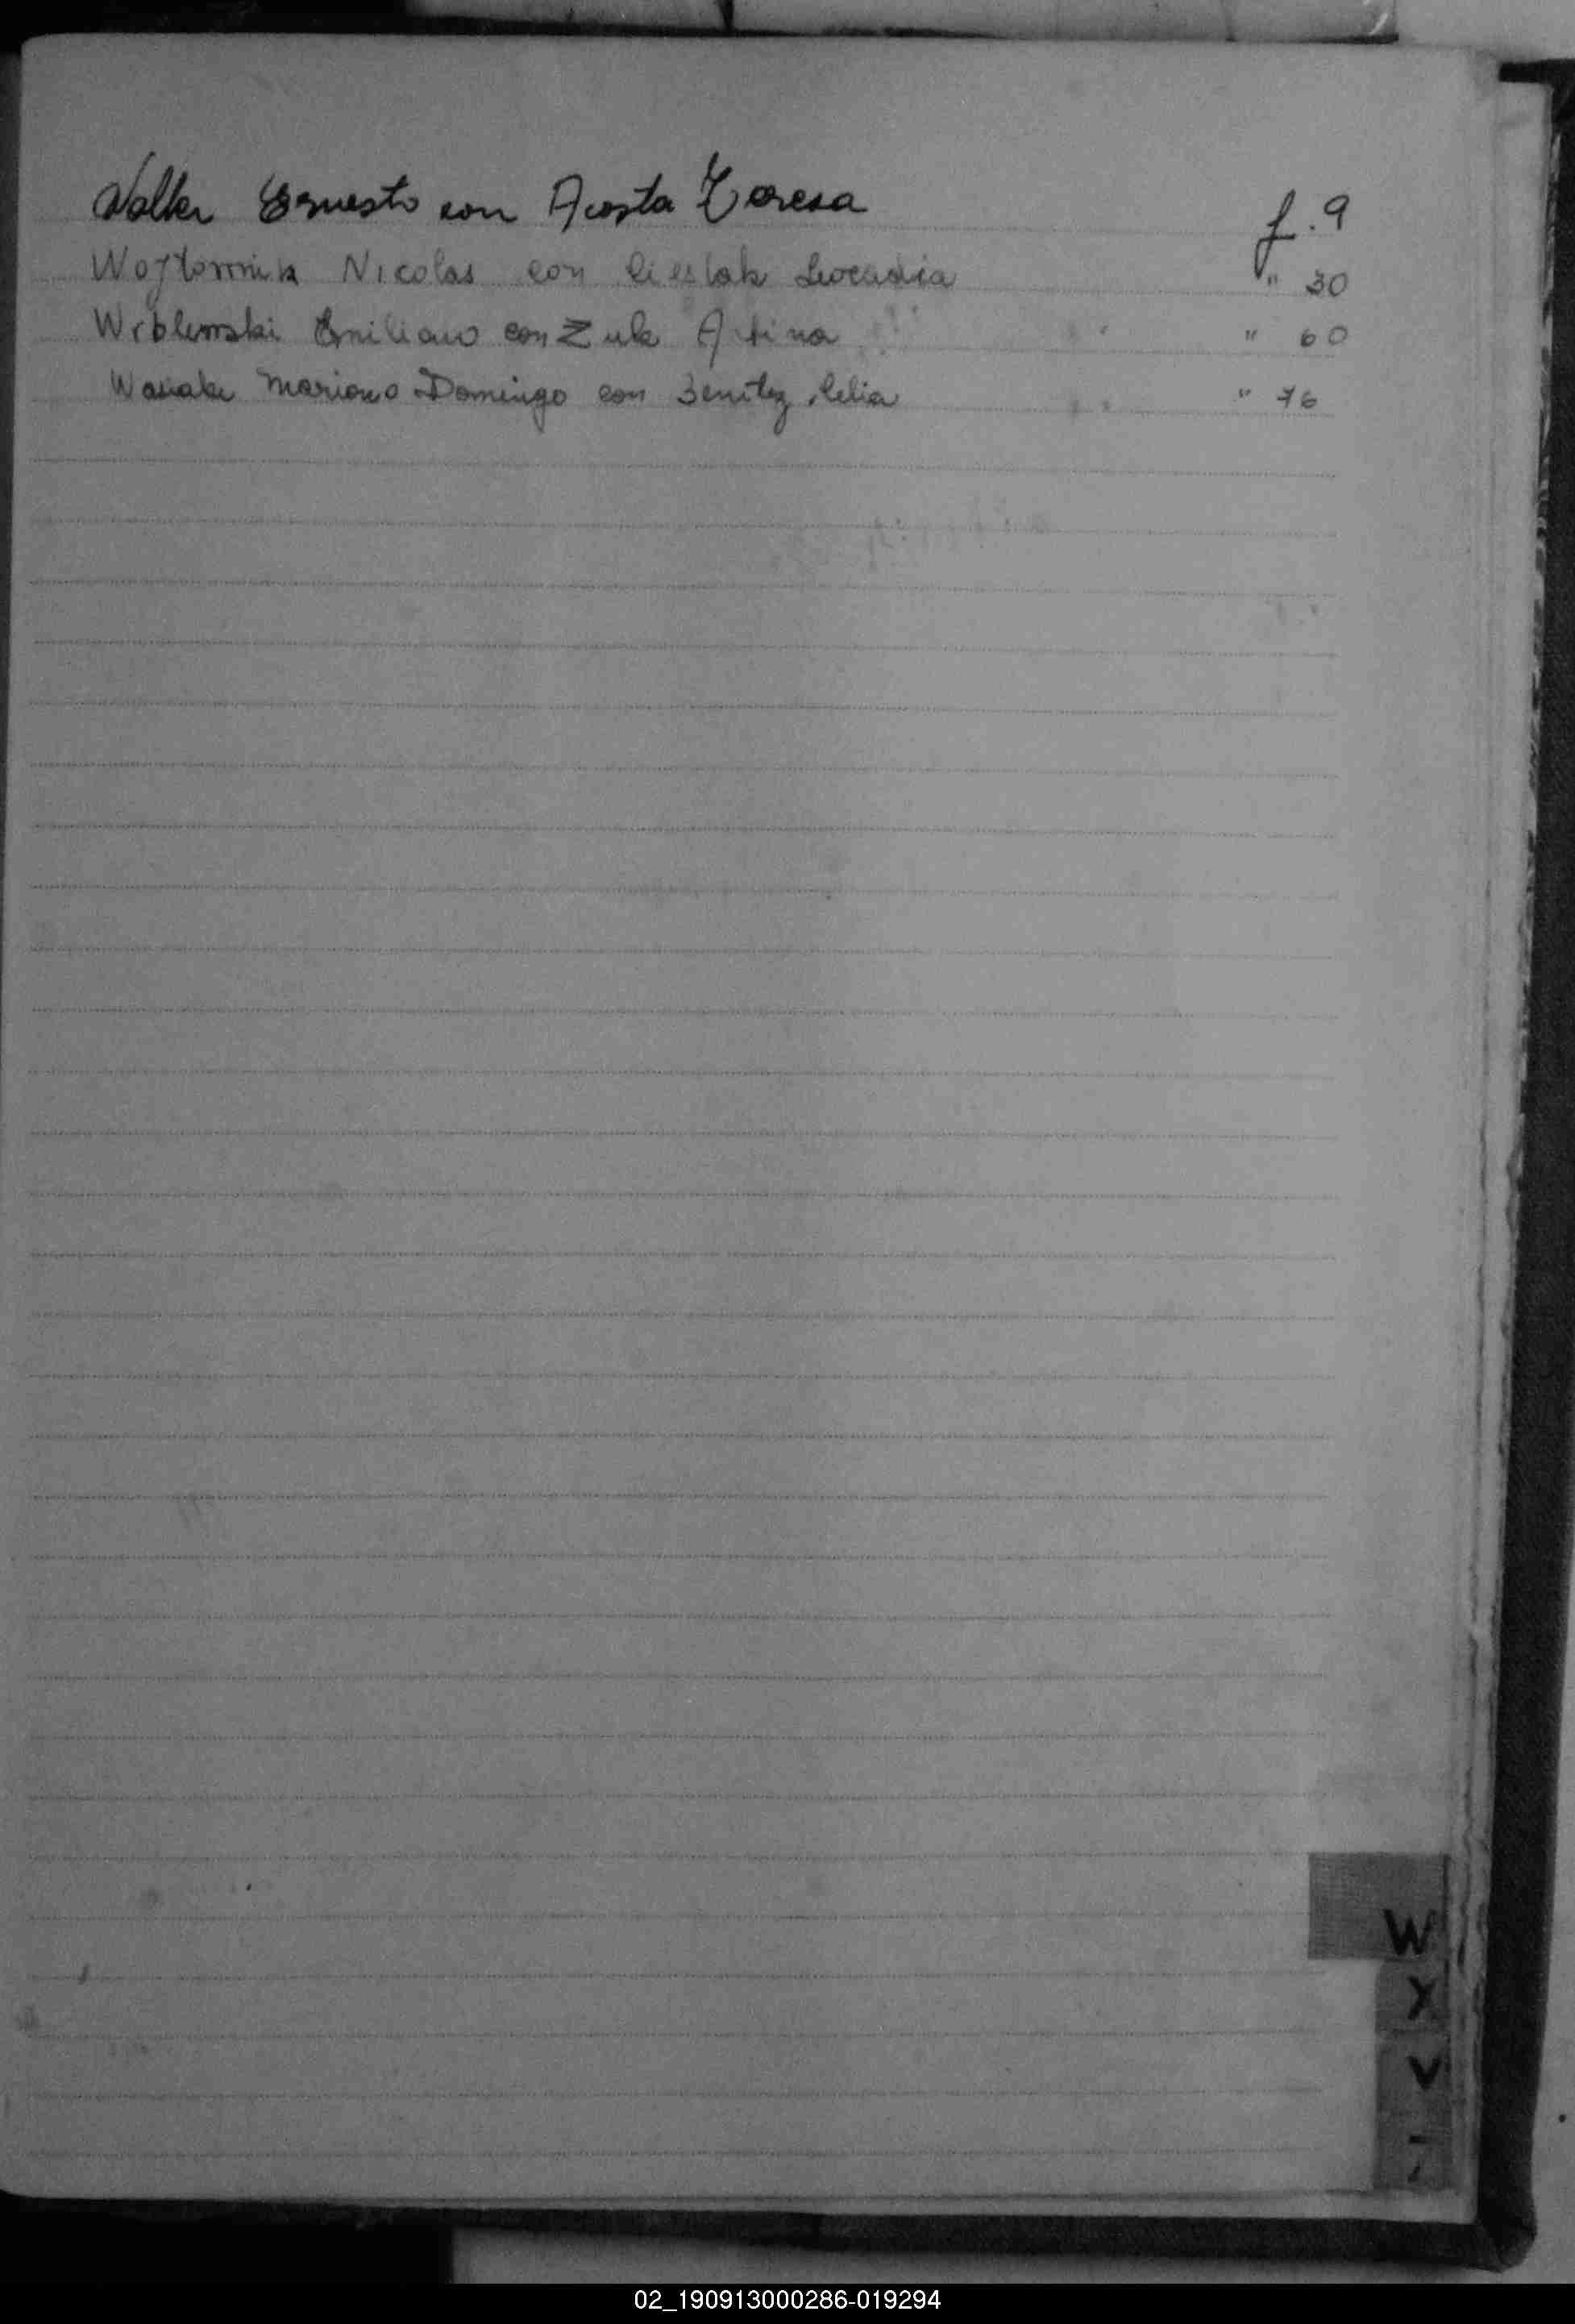 Walker Ernesto con Acosta Teresa f. 9
Nicolas con Cieslak Leocadia " 30
Emiliano con Zuk " 60
Mariano Domingo con Benitez Celia " 76
W
X
02_190913000286-019294